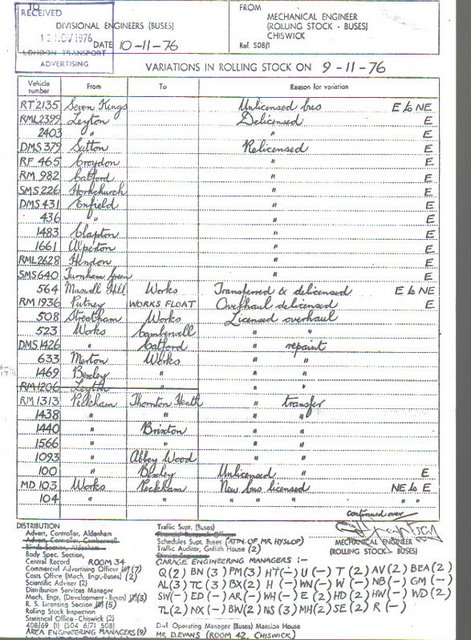 TO
RECEIVED
12 NOV 1976
LONDON TRANSPORT
ADVERTISING
DIVISIONAL ENGINEERS (BUSES)
DATE 10-11-76
FROM
MECHANICAL ENGINEER
(ROLLING STOCK - BUSES)
CHISWICK
Ref. 508/1
VARIATIONS IN ROLLING STOCK ON 9-11-76
Vehicle number From To Reason for variation
RT 2135 Seven Kings Unlicensed bus E to NE
RML 2399 Leyton Delicensed E
2403 " " E
DMS 379 Sutton Relicensed E
RF 465 Croydon " E
RM 982 Catford " E
SMS 226 Hornchurch " E
DMS 431 Enfield " E
436 " " E
1483 Clapton " E
1661 Alperton " E
RML 2628 Hendon " E
SMS 640 Turnham Green " E
564 Muswell Hill Works Transferred & delicensed E to NE
RM 1936 Putney WORKS FLOAT Overhaul delicensed E
508 Streatham Works Licensed overhaul
523 Works Camberwell " "
DMS 1426 " Catford " repaint
633 Merton Works " "
1469 Bexley " " "
RM 1206 Leyton " "
RM 1313 Peckham Thornton Heath " transfer
1438 " " " "
1440 " Brixton " "
1566 " " " "
1093 " Abbey Wood " "
100 " Bexley Unlicensed " E
MD 103 Works Peckham New bus licensed NE to E
104 " " " " " " " "
continued over
DISTRIBUTION
Advert. Controller, Aldenham
Body Spec. Section,
Central Record ROOM 34
Commercial Advertising Officer (7)
Costs Office (Mach. Engr.-Buses) (2)
Scientific Adviser (2)
Distribution Services Manager
Mach. Engr. (Development - Buses) (3)
R. S. Licensing Section (5)
Rolling Stock Inspection
Statistical Office - Chiswick (2)
408/69 B1 (504 6/71 508)
AREA ENGINEERING MANAGERS (9)
Traffic Supt. (Buses)
Schedules Supt. Buses (ATTN. OF MR. HYSLOP)
Traffic Auditor, Griffith House (2)
MECHANICAL ENGINEER
(ROLLING STOCK - BUSES)
GARAGE ENGINEERING MANAGERS :-
Q (2) BN (3) PM (3) HT (-) U (-) T (2) AV (2) BEA (2)
AL (3) TC (3) BX (2) H (-) WN (-) W (-) NB (-) GM (-)
SW (-) ED (-) AR (-) WH (-) E (2) HD (2) HW (-) WD (2)
TL (2) NX (-) BW (2) NS (3) MH (2) SE (2) R (-)
Divl. Operating Manager (Buses) Mansion House
MR D. EVANS (ROOM 42, CHISWICK)